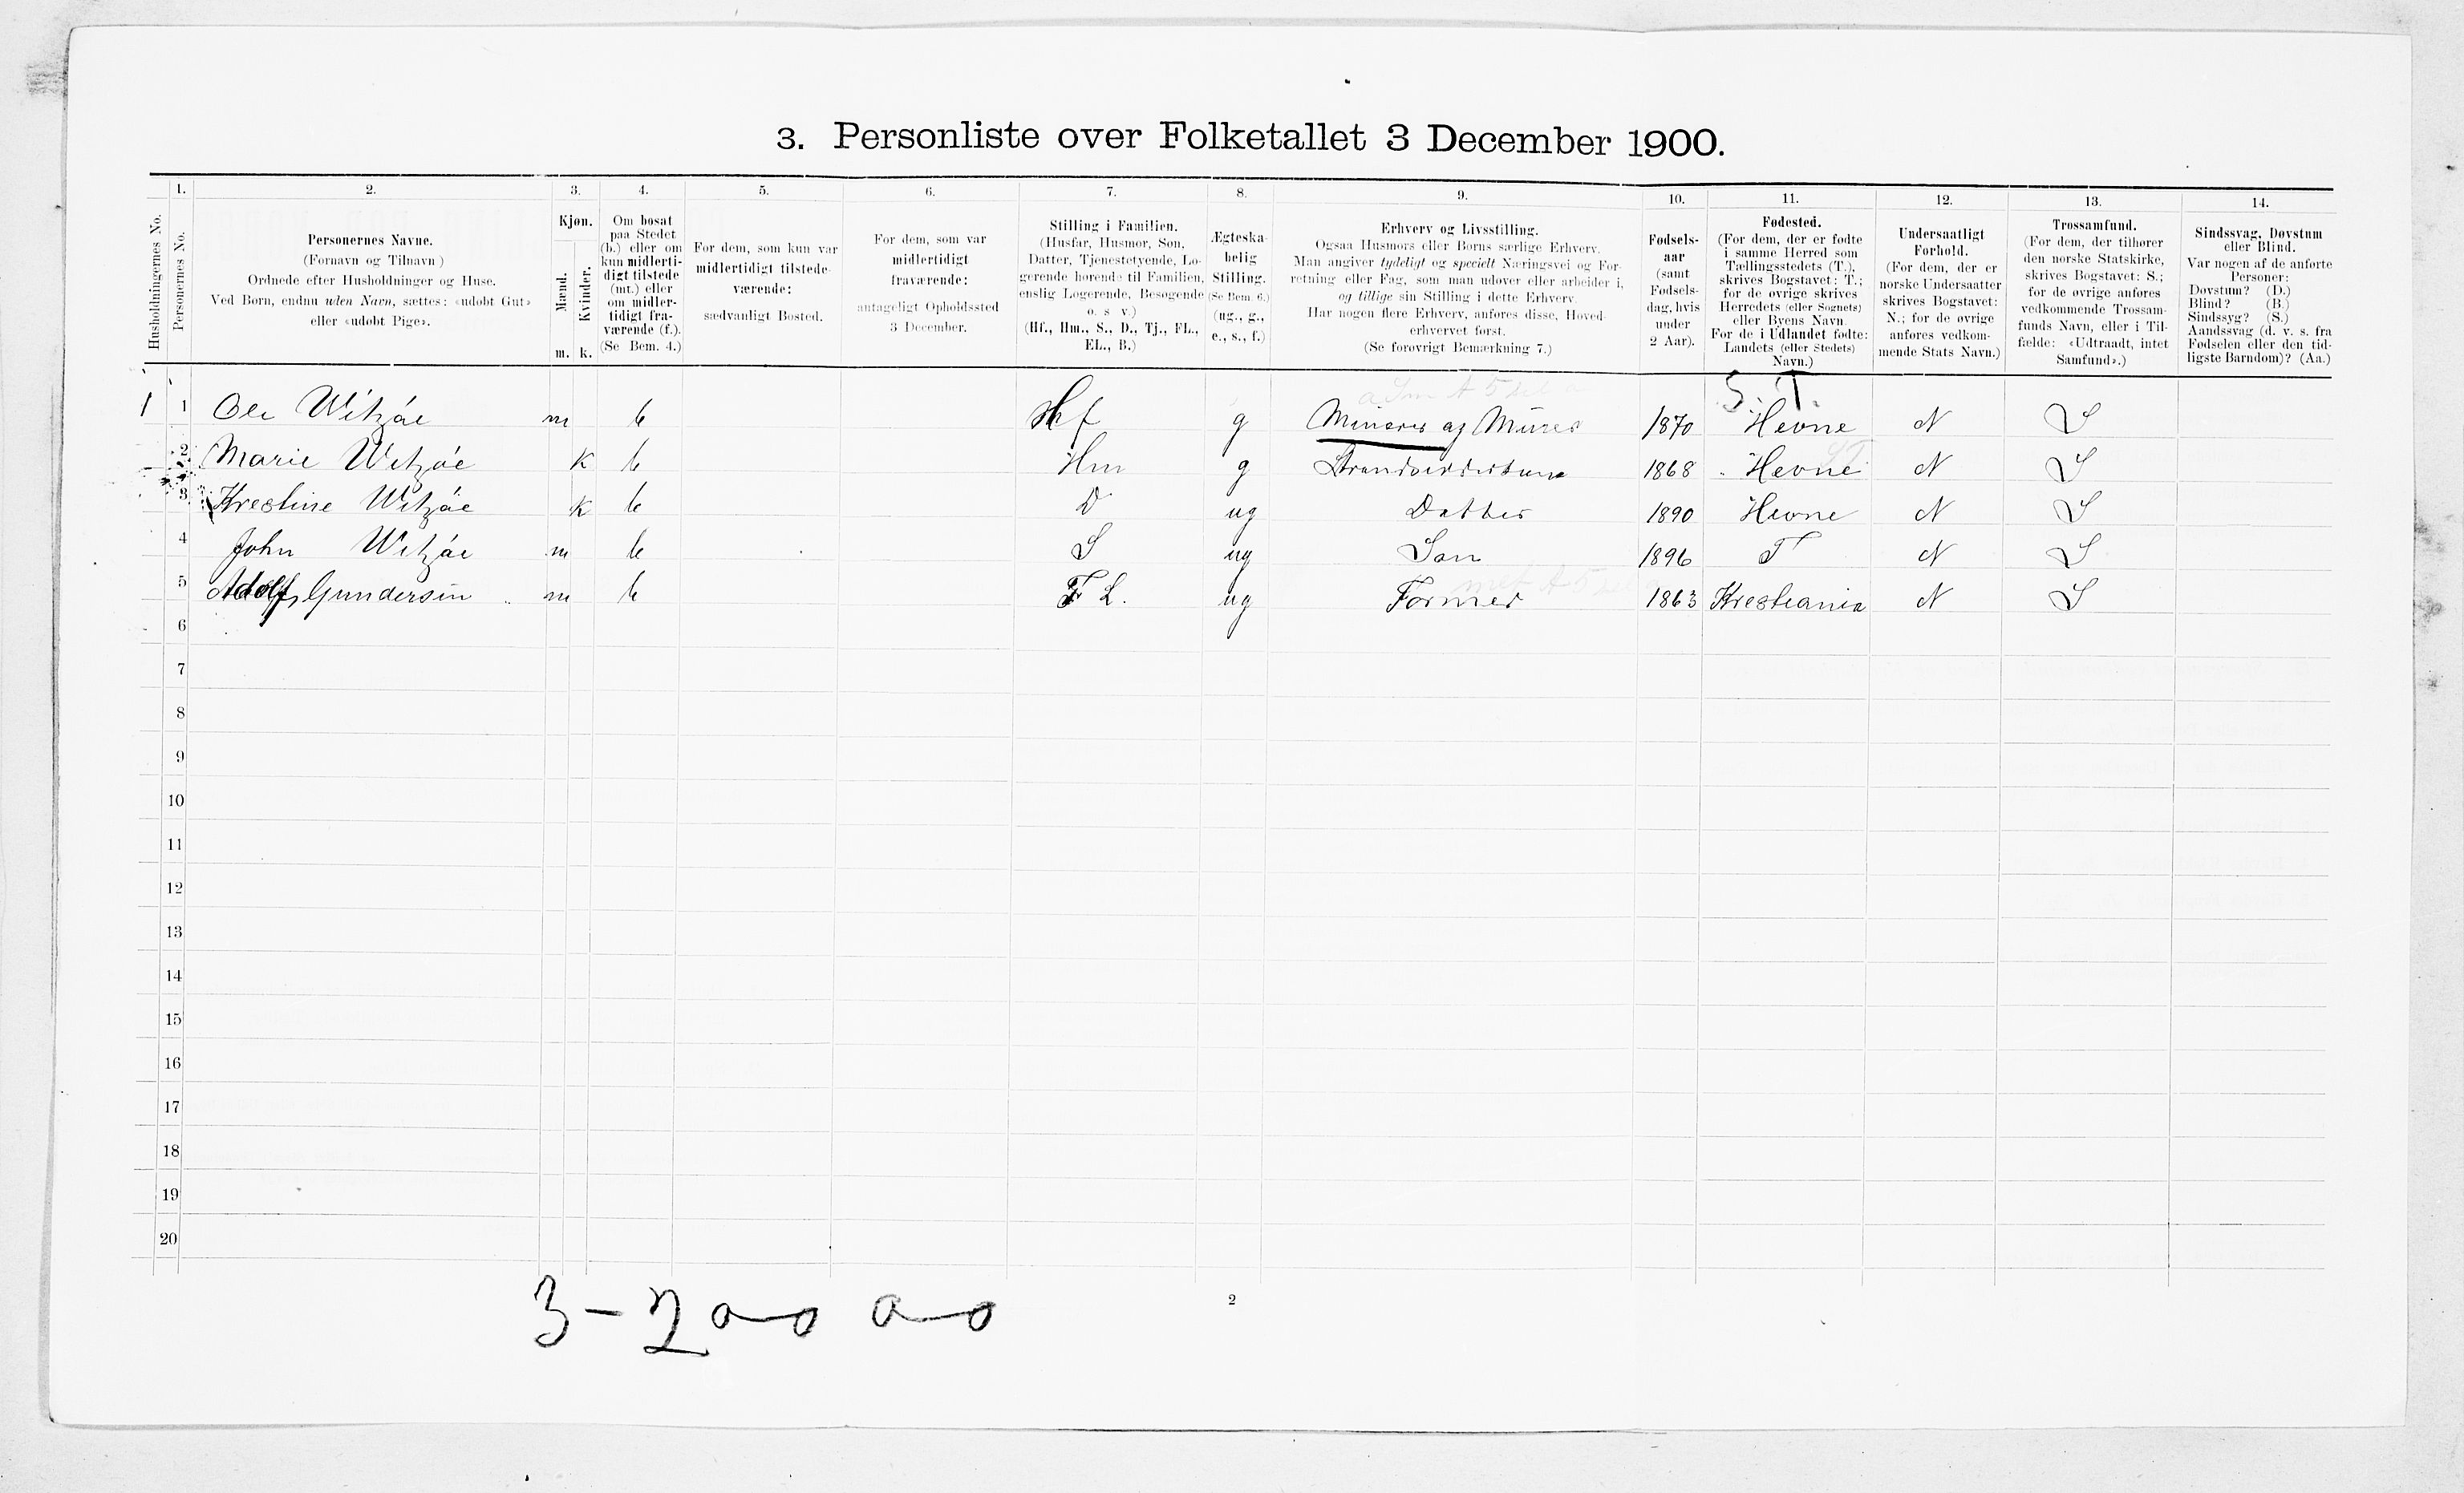 3. Personliste over Folketallet 3 December 1900.
Husholdningernes No.
1. Personernes No.
2. Personernes Navne.
(Fornavn og Tilnavn)
Ordnede efter Husholdninger og Huse.
Ved Børn, endnu uden Navn, sættes: «udøbt Gut»
eller «udøbt Pige».
3. Kjøn.
Mænd. m.
Kvinder. k.
4. Om bosat
paa Stedet
(b.) eller om
kun midlerti-
digt tilstede
(mt.) eller
om midler-
tidigt fra-
værende (f.).
(Se Bem. 4.)
5. For dem, som kun var
midlertidigt tilstede-
værende:
sædvanligt Bosted.
6. For dem, som var
midlertidigt
fraværende:
antageligt Opholdssted
3 December.
7. Stilling i Familien.
(Husfar, Husmor, Søn,
Datter, Tjenestetyende, Lo-
gerende hørende til Familien,
enslig Logerende, Besøgende
o. s v.)
(Hf., Hm., S., D., Tj., FL.,
EL., B.)
8. Ægteska-
belig
Stilling.
(Se Bem. 6.)
(ug., g.,
e., s., f.)
9. Erhverv og Livsstilling.
Ogsaa Husmors eller Børns særlige Erhverv.
Man angiver tydeligt og specielt Næringsvei og For-
retning eller Fag, som man udøver eller arbeider i,
og tillige sin Stilling i dette Erhverv.
Har nogen flere Erhverv, anføres disse, Hoved-
erhvervet først.
(Se forøvrigt Bemærkning 7.)
10. Fødsels-
aar
(samt
Fødsels-
dag, hvis
under
2 Aar).
11. Fødested.
(For dem, der er fødte
i samme Herred som
Tællingsstedets (T.),
skrives Bogstavet: T.;
for de øvrige skrives
Herredets (eller Sognets)
eller Byens Navn
For de i Udlandet fødte:
Landets (eller Stedets)
Navn.)
12. Undersaatligt
Forhold.
(For dem, der er
norske Undersaatter
skrives Bogstavet:
N.; for de øvrige
anføres vedkom-
mende Stats Navn.)
13. Trossamfund.
(For dem, der tilhører
den norske Statskirke,
skrives Bogstavet: S.;
for de øvrige anføres
vedkommende Trossam-
funds Navn, eller i Til-
fælde: «Udtraadt, intet
Samfund».)
14. Sindssvag, Døvstum
eller Blind.
Var nogen af de anførte
Personer:
Døvstum? (D.)
Blind? (B.)
Sindssyg? (S.)
Aandssvag (d. v. s. fra
Fødselen eller den tid-
ligste Barndom)? (Aa.)
S. T.
1 1 Ole Witzøe m b Hf g Minerer og Murer 1870 Hevne N S
2 Marie Witzøe k b Hm g 1868 Hevne N S
3 Krestine Witzøe k b D ug Datter 1890 Hevne N S
4 John Witzøe m b S ug Søn 1896 T N S
5 Adolf Gundersen m b F L. ug Former 1863 Krestiania N S
6
7
8
9
10
11
12
13
14
15
16
17
18
19
20
3 - 2 0-0 0-0
2